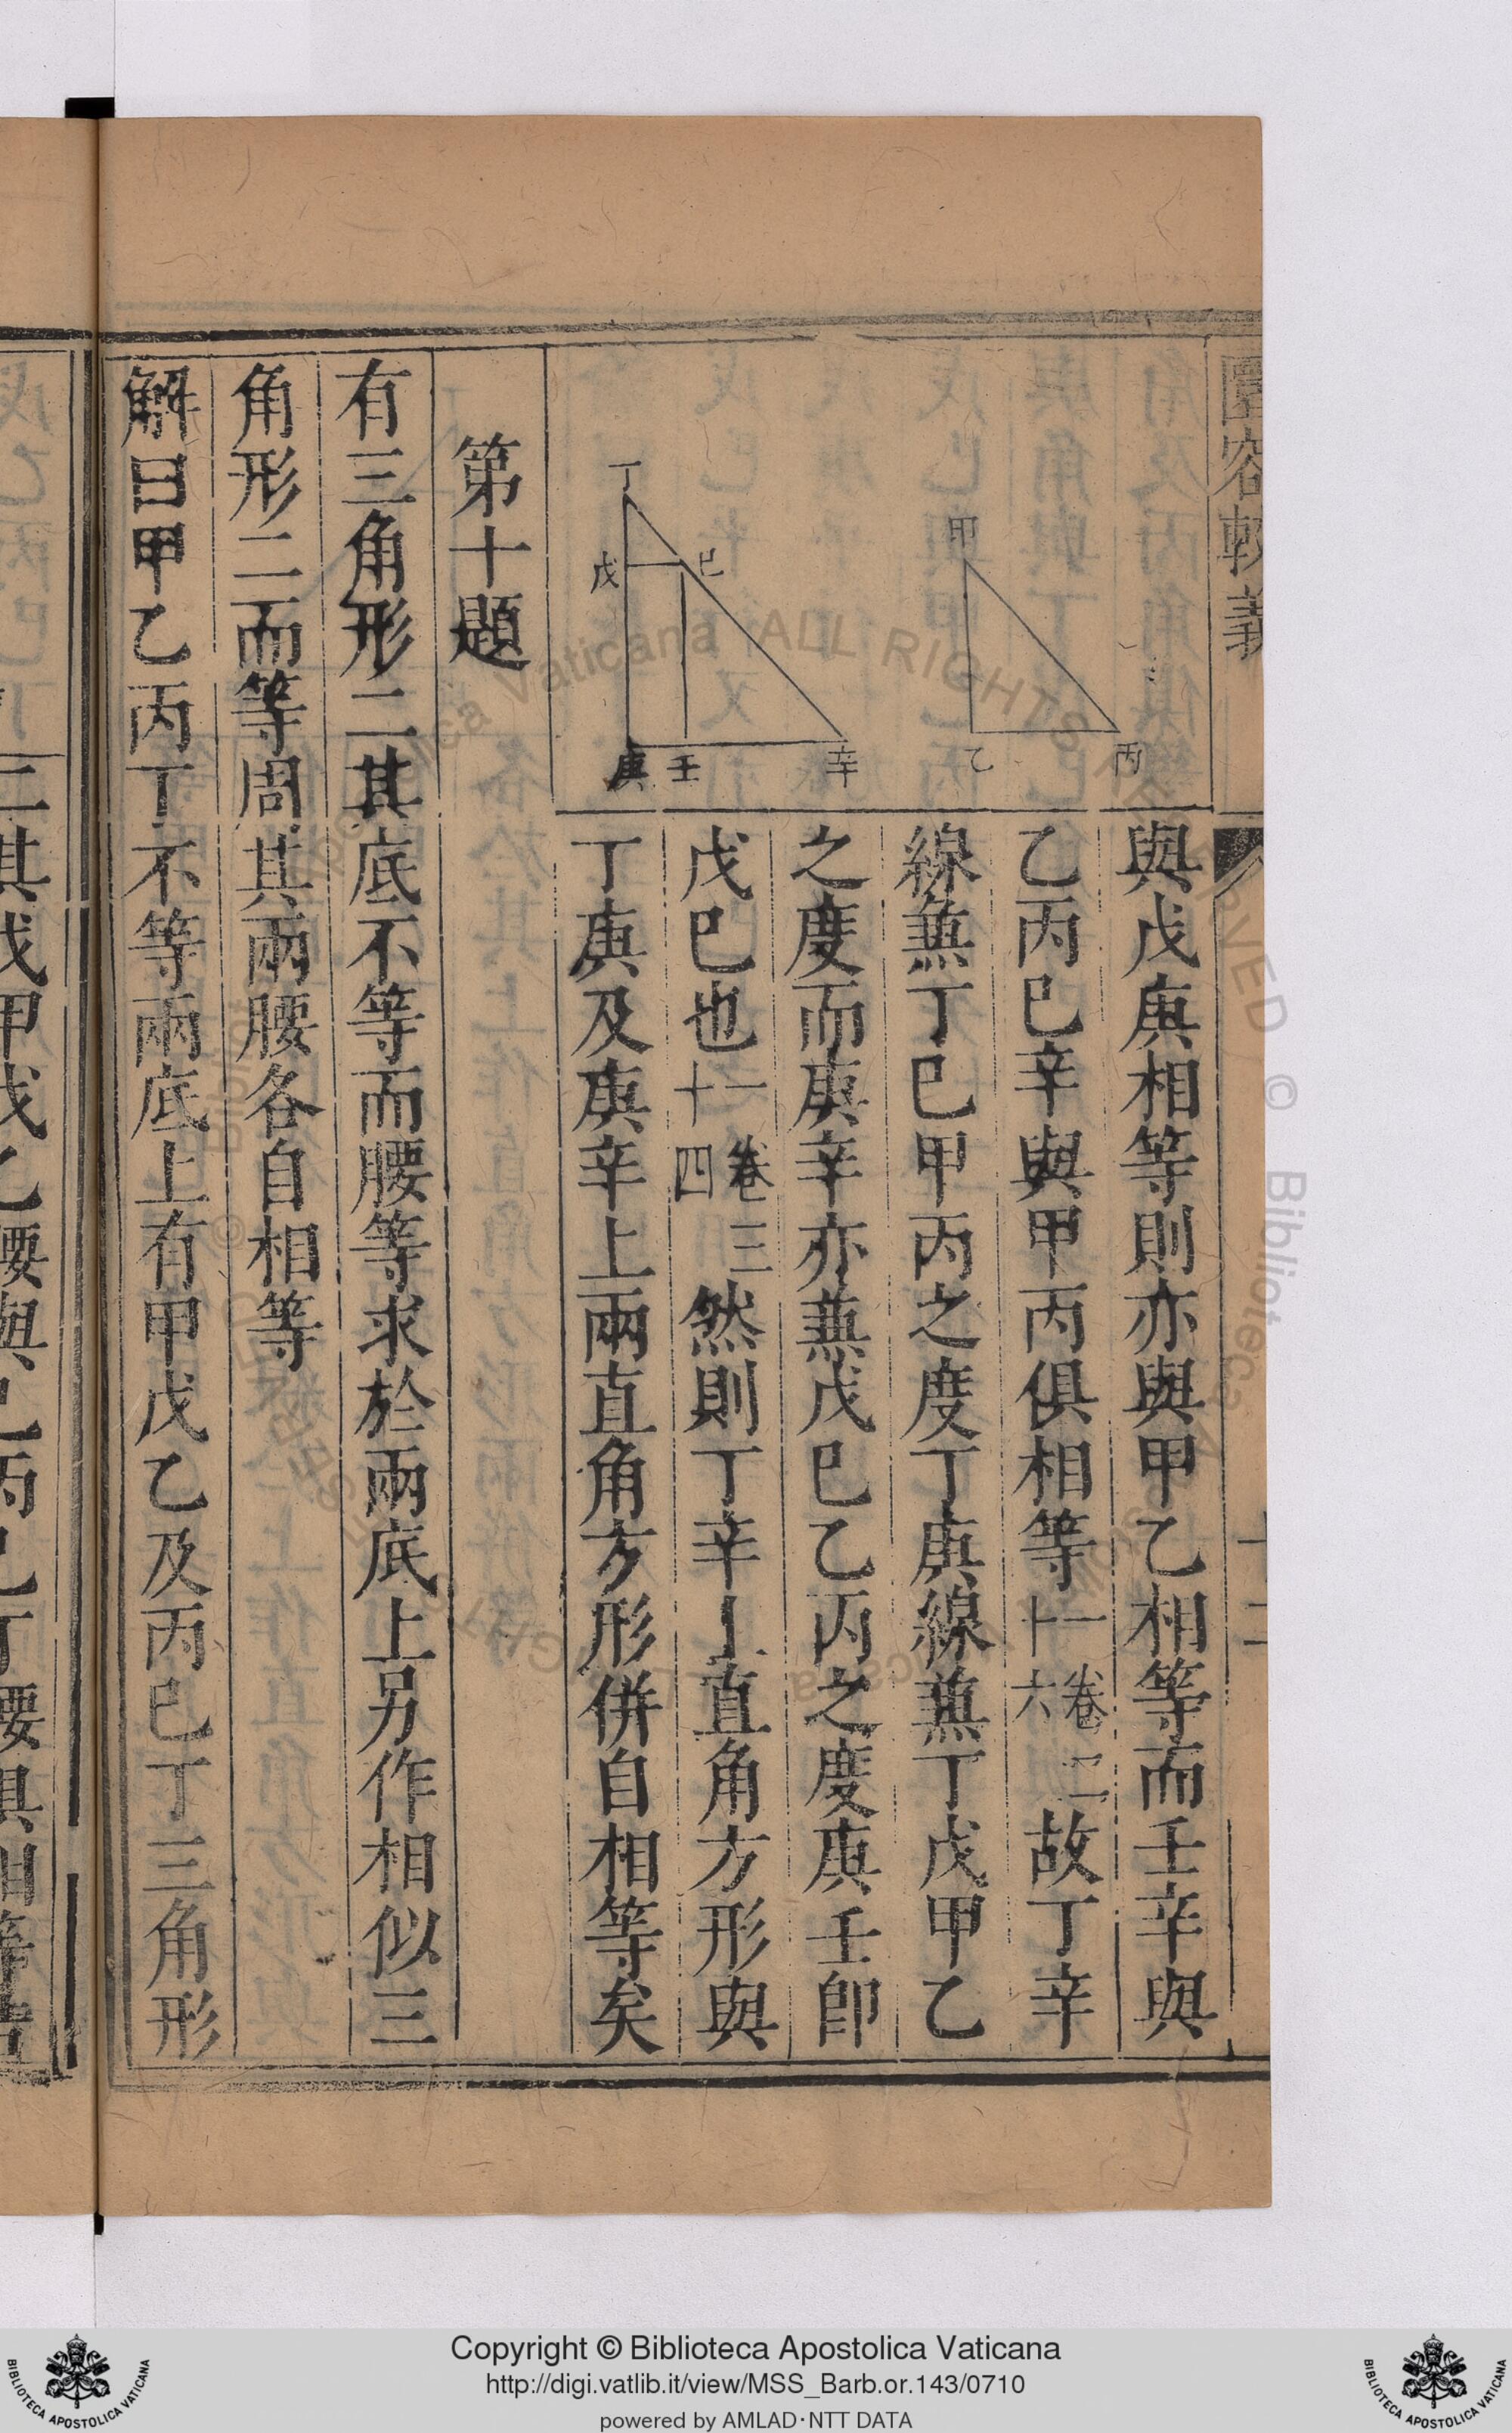 圜容較義
十二
甲
乙
丙
丁
戊
己
庚
壬
辛
與戊庚相等則亦與甲乙相等而壬辛與
乙丙巳辛與甲丙俱相等一卷二十六故丁辛
線兼丁巳甲丙之度丁庚線兼丁戊甲乙
之度而庚辛亦兼戊巳乙丙之度庚壬卽
戊巳也一卷三十四然則丁辛上直角方形與
丁庚及庚辛上兩直角方形併自相等矣
第十題
有三角形二其底不等而腰等求於兩底上另作相似三
角形二而等周其兩腰各自相等
解曰甲乙丙丁不等兩底上有甲戊乙及丙巳丁三角形
二其戊甲戊乙腰與巳丙巳丁腰俱相等
Copyright © Biblioteca Apostolica Vaticana
http://digi.vatlib.it/view/MSS_Barb.or.143/0710
powered by AMLAD·NTT DATA
BIBLIOTECA APOSTOLICA VATICANA
BIBLIOTECA APOSTOLICA VATICANA